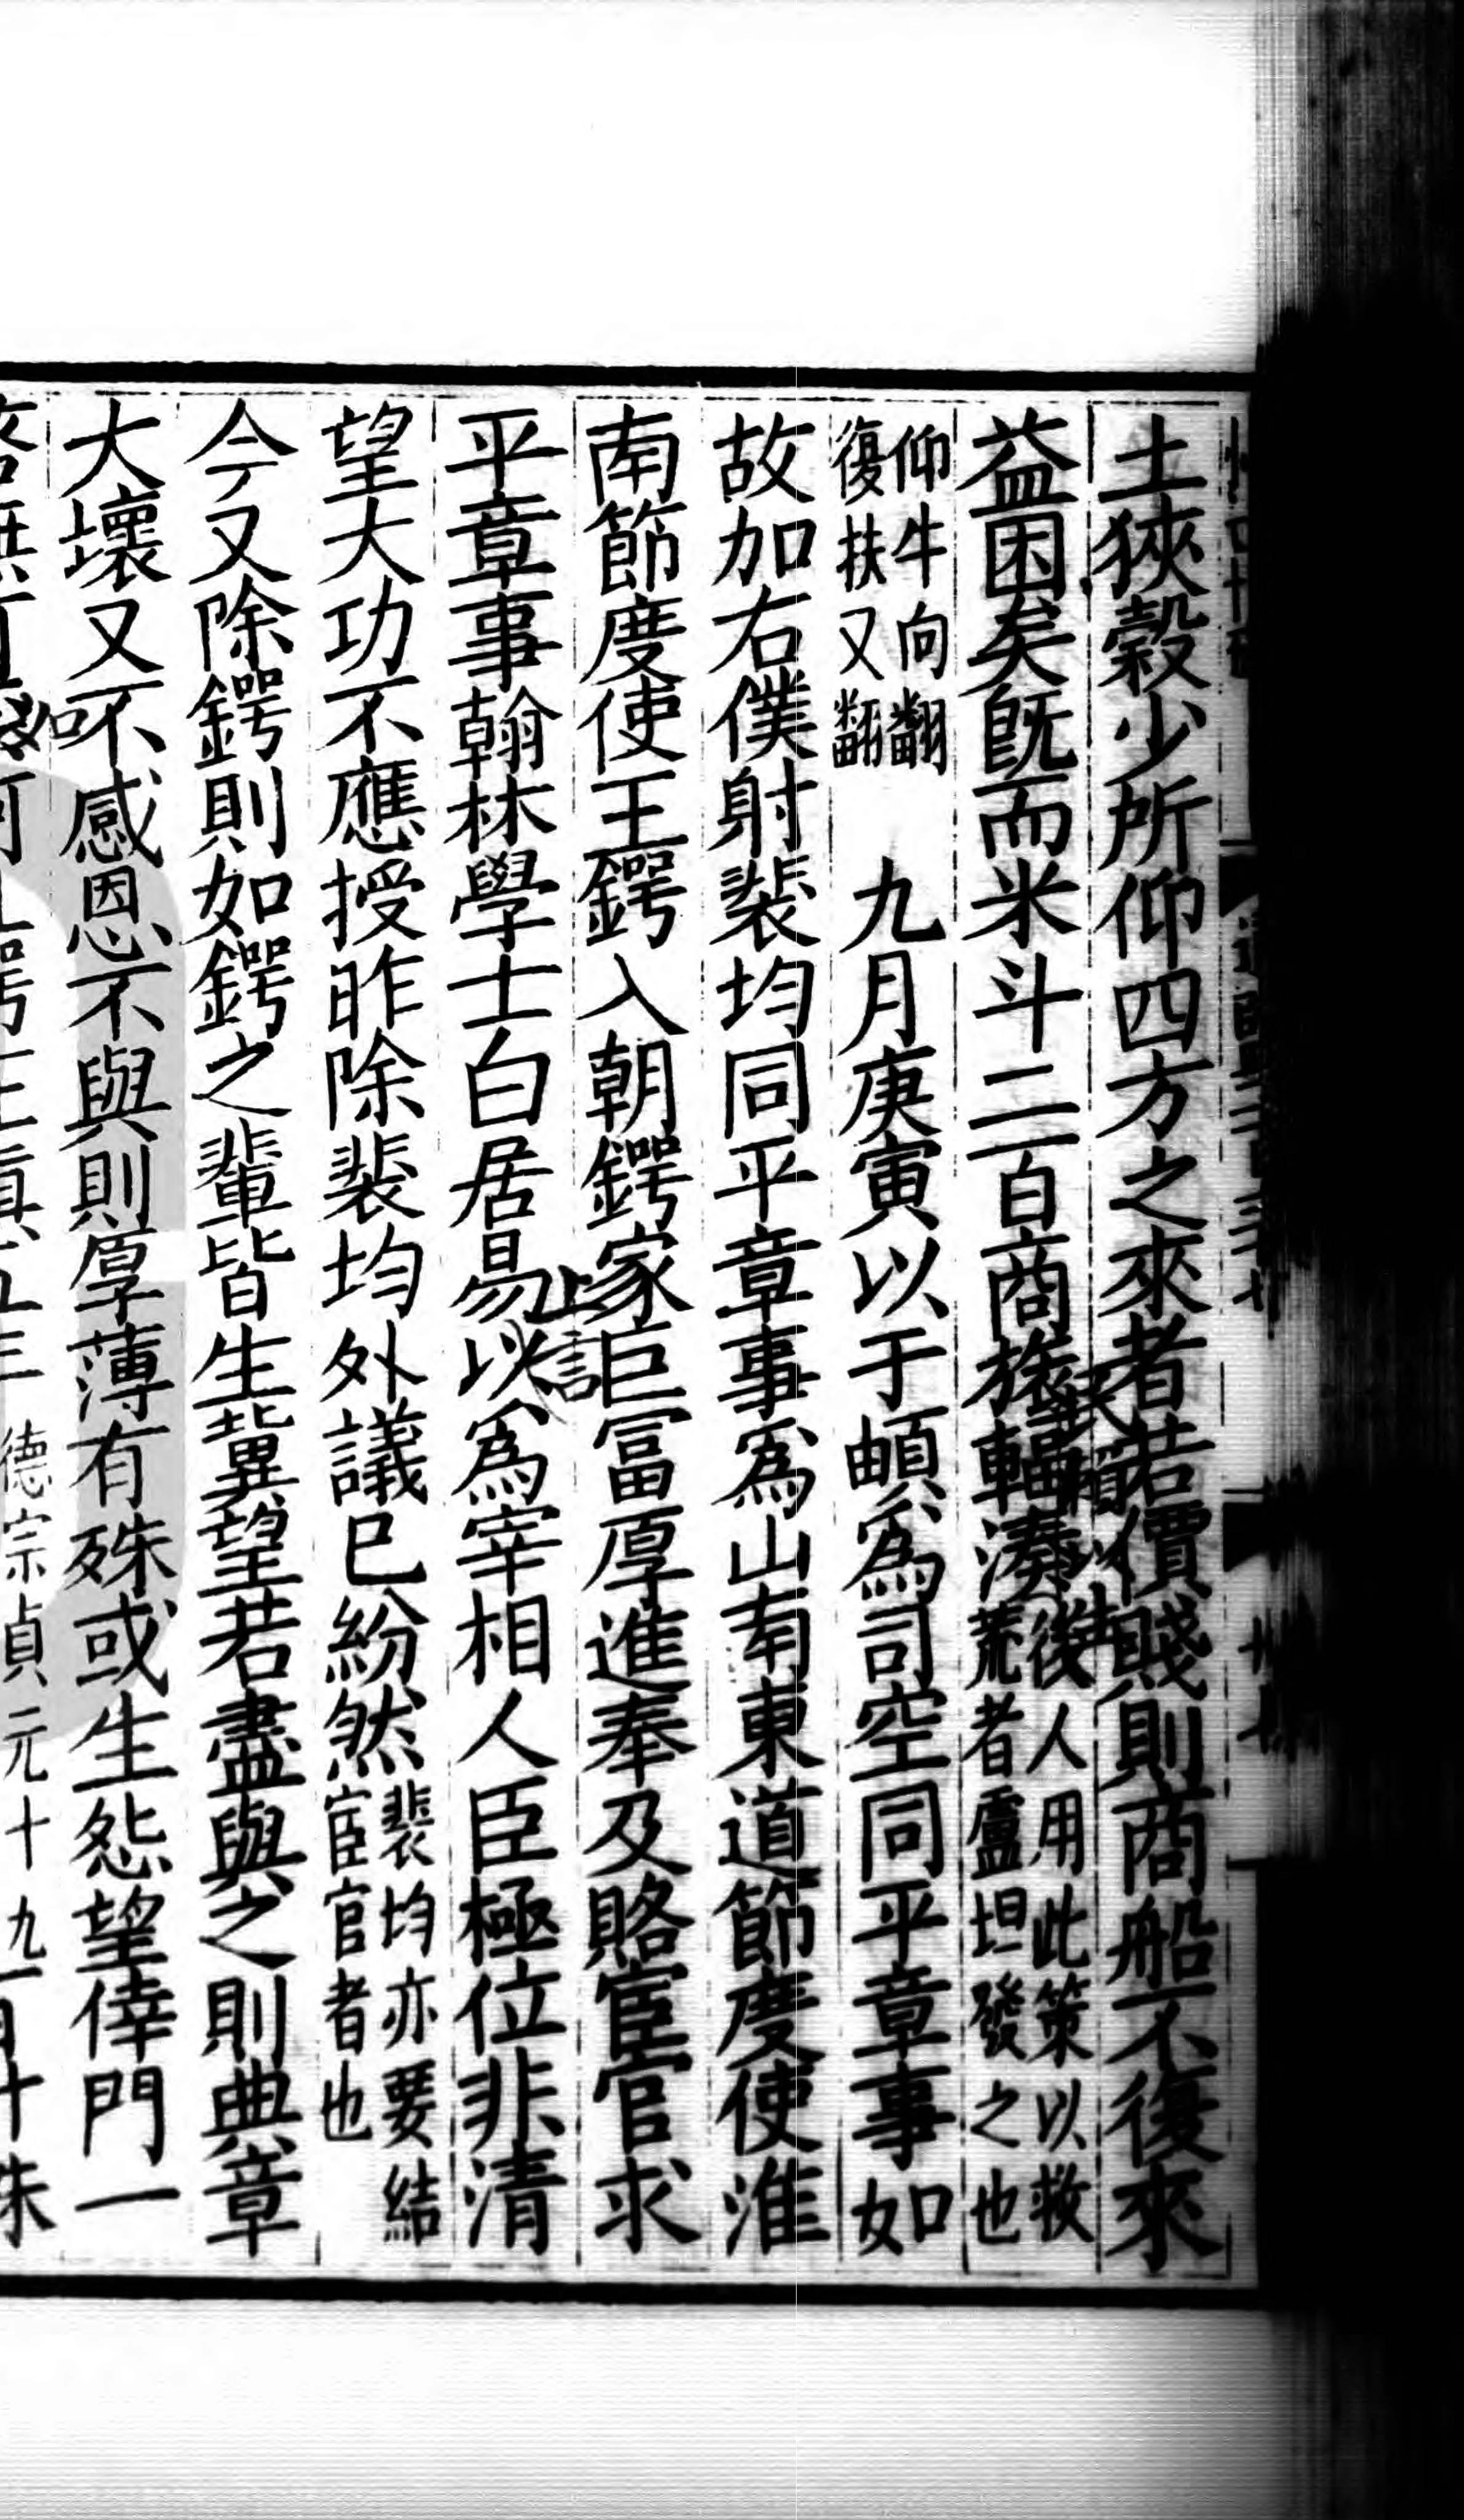 土狹穀少所仰四方之來者若價賤則商船不復來
益困矣旣而米斗二百商旅輻湊後人用此策以救荒者盧坦發之也
民賴以
仰牛向翻復扶又翻 九月庚寅以于頔爲司空同平章事如
故加右僕射裴均同平章事爲山南東道節度使淮
南節度使王鍔入朝鍔家巨富厚進奉及賂宦官求
平章事翰林學士白居易以爲宰相人臣極位非清
上言
望大功不應授昨除裴均外議已紛然裴均亦要結宦官者也
今又除鍔則如鍔之輩皆生冀望若盡與之則典章
大壞又不感恩不與則厚薄有殊或生怨望倖門一
德宗貞元十九